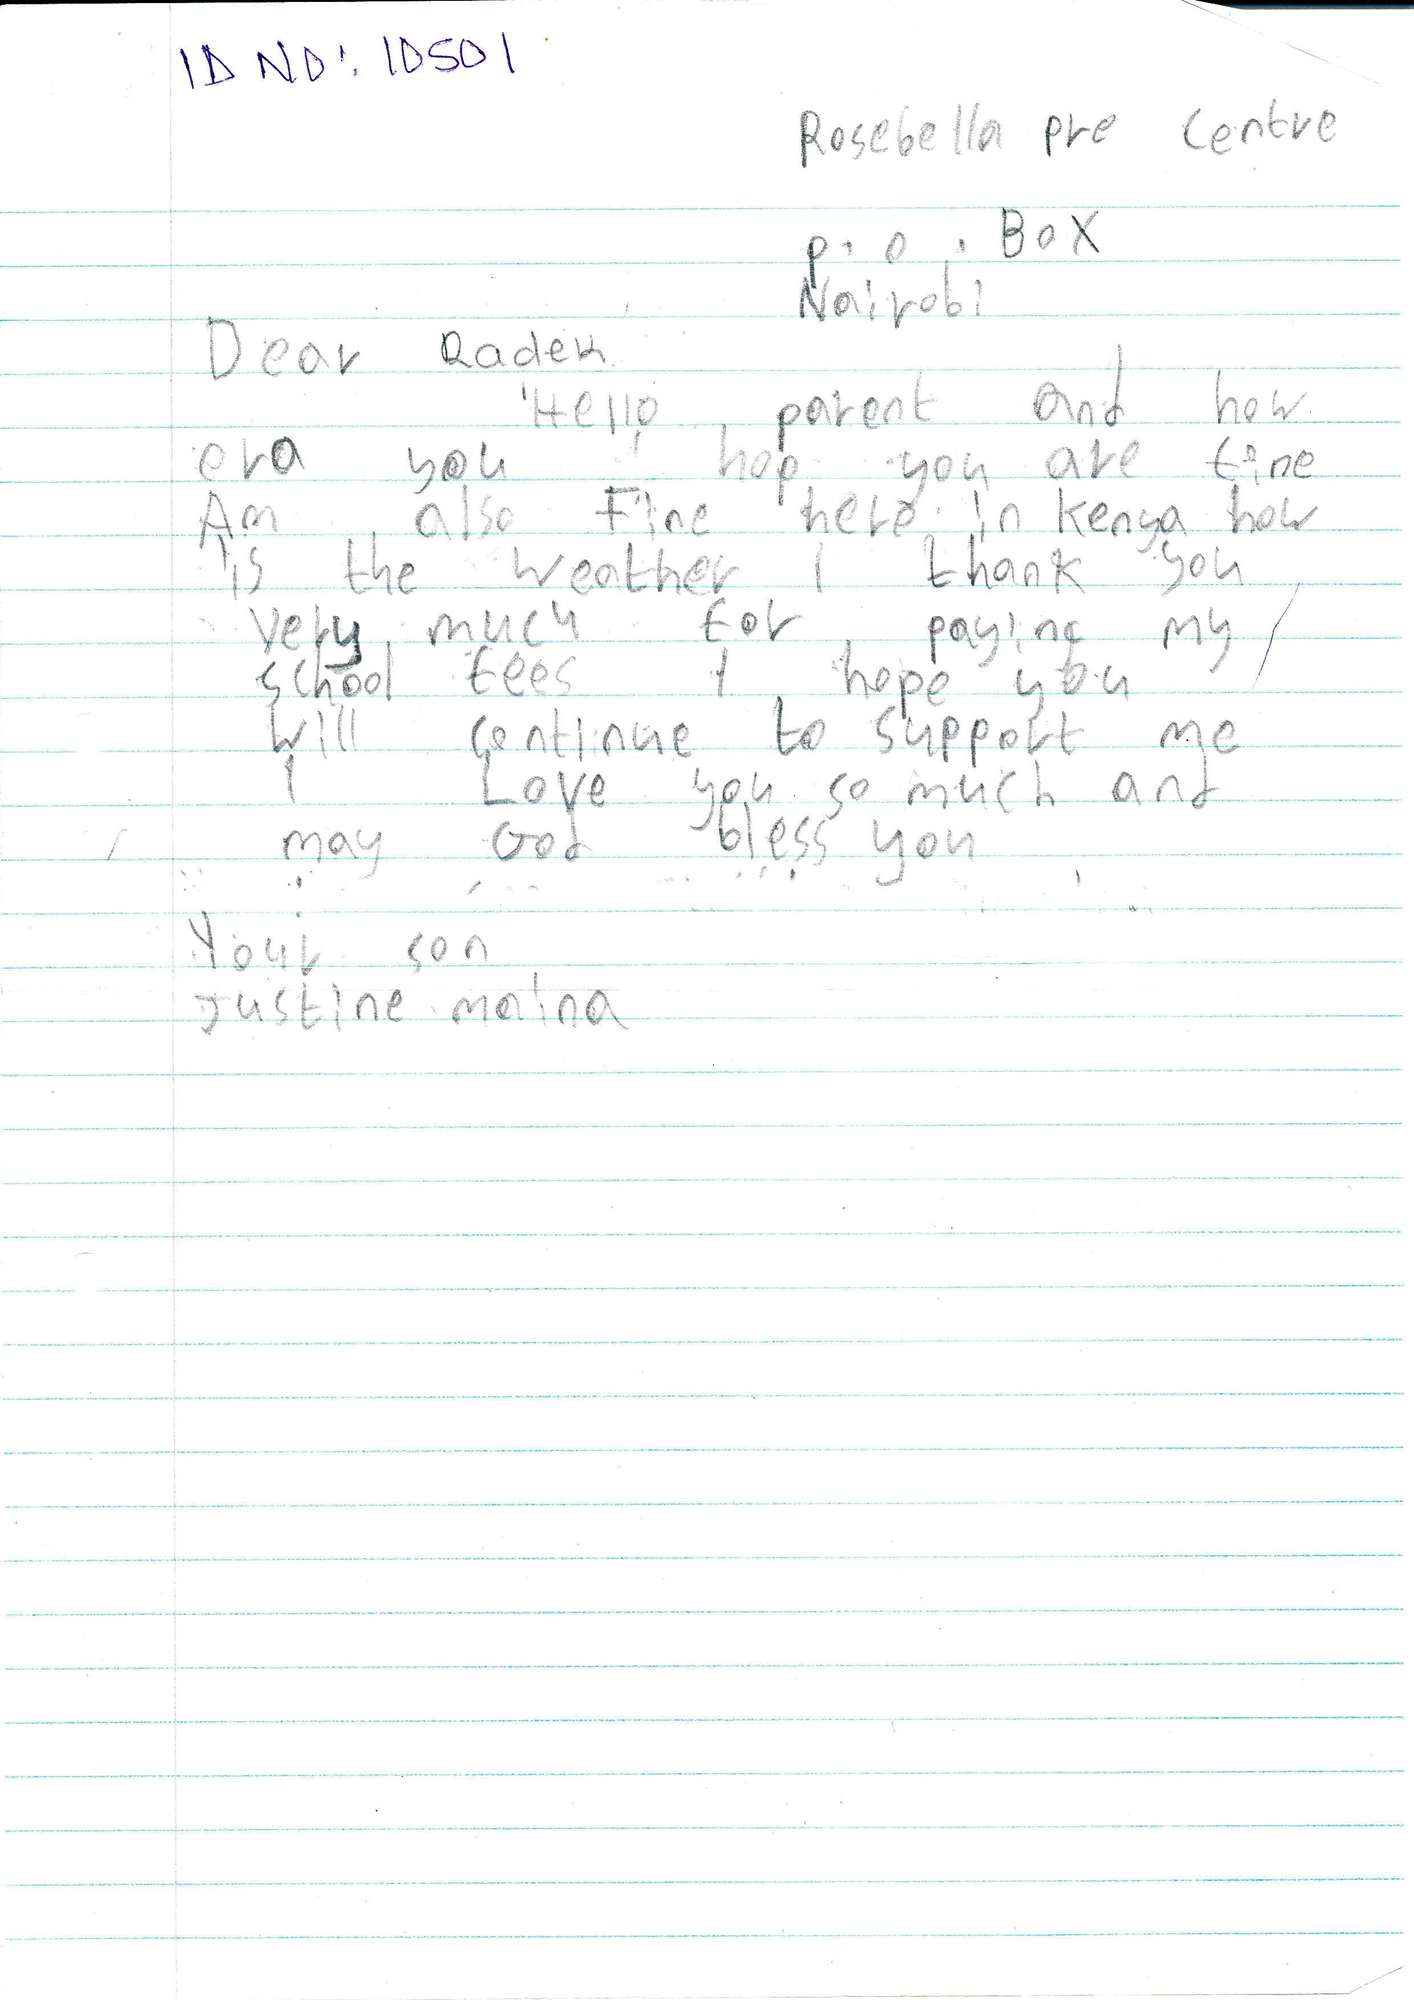 ID NO: 10501
Rosebella pre centre
p. o . BOX
Nairobi
Dear Radek
Hello parent and how
era you I hop you are fine
Am also Fine here in kenya how
is the weather I thank you
very much for paying my
school fees I hope you
will continue to support me
I Love you so much and
may God bless you
Your son
Justine maina